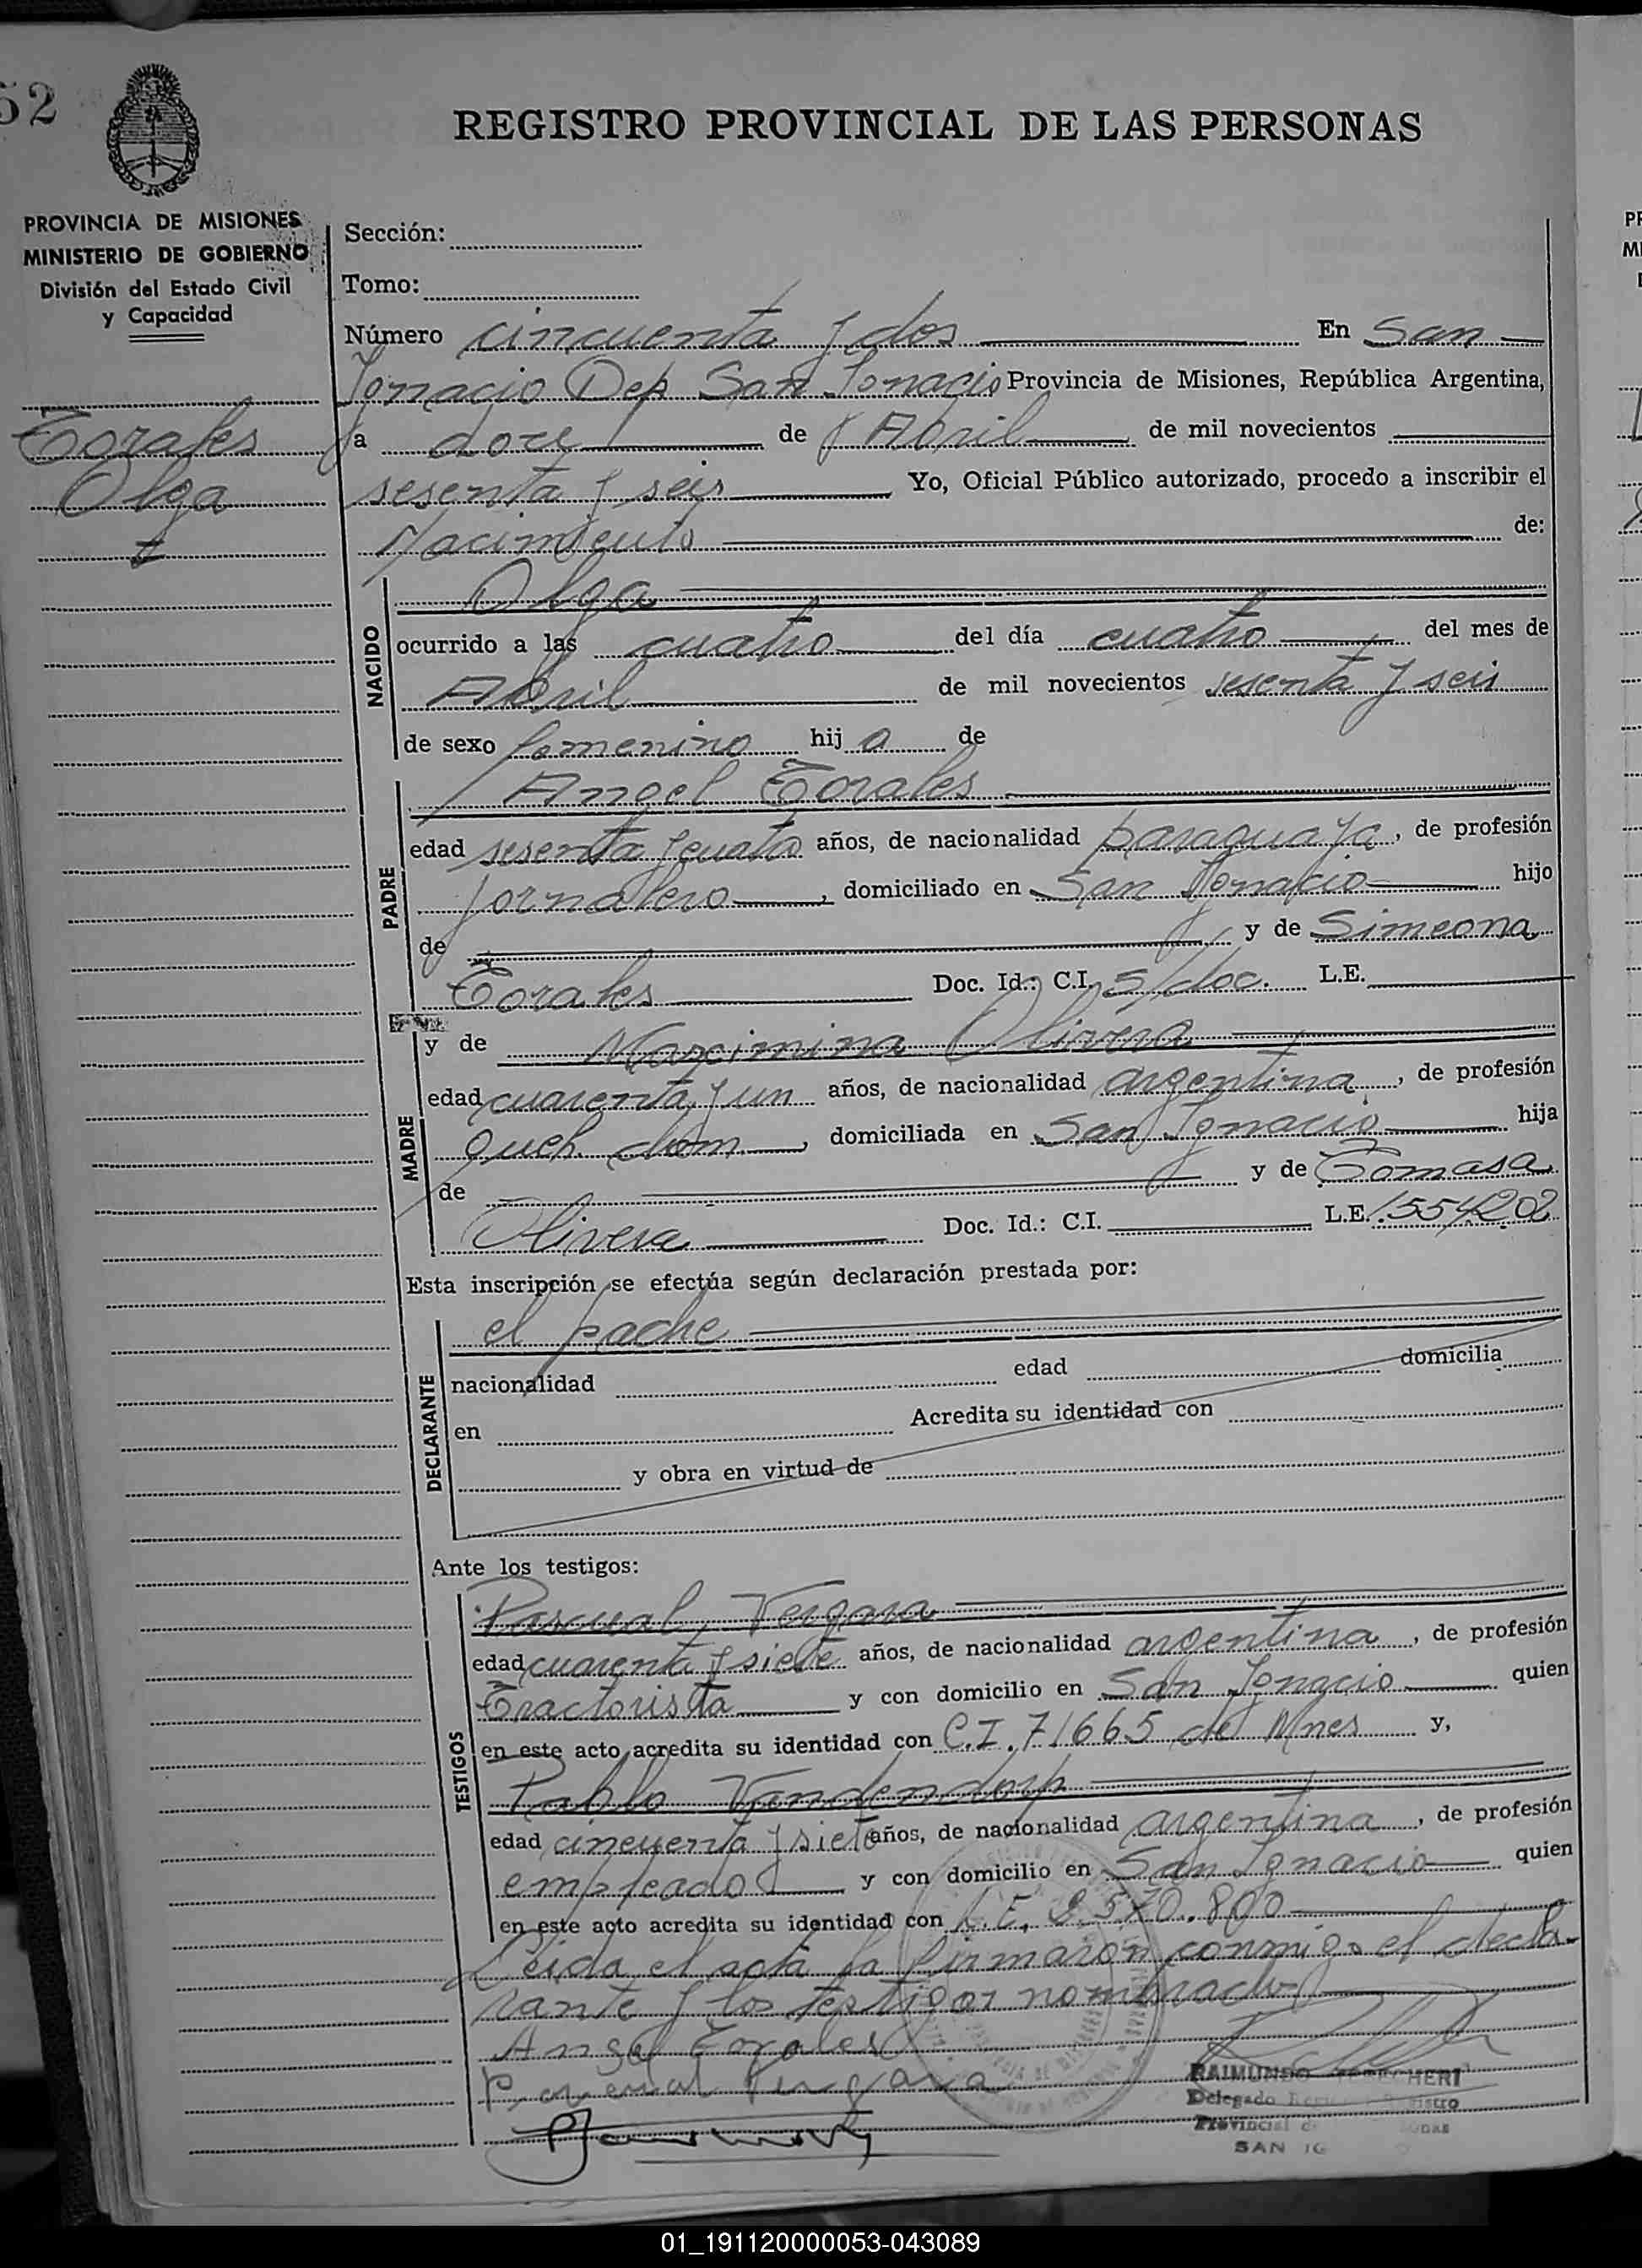 52
REGISTRO PROVINCIAL DE LAS PERSONAS
PROVINCIA DE MISIONES
MINISTERIO DE GOBIERNO
División del Estado Civil
y Capacidad
Torales
Olga
Sección:
Tomo:
Número cincuenta y dos En San
Ignacio Dep San Ignacio Provincia de Misiones, República Argentina,
a doce de Abril de mil novecientos
sesenta y seis Yo, Oficial Público autorizado, procedo a inscribir el
Nacimiento de:
NACIDO
Olga
ocurrido a las cuatro del día cuatro del mes de
Abril de mil novecientos sesenta y seis
de sexo femenino hij a de
PADRE
Angel Torales
edad sesenta y cuatro años, de nacionalidad paraguaya, de profesión
jornalero, domiciliado en San Ignacio hijo
de y de Simeona
Torales Doc. Id.: C.I. s/doc. L.E.
MADRE
y de Marcimina Olivera
edad cuarenta y un años, de nacionalidad argentina, de profesión
queh. dom., domiciliada en San Ignacio hija
de y de Tomasa
Olivera Doc. Id.: C.I. L.E. 1554202
Esta inscripción se efectúa según declaración prestada por:
DECLARANTE
el padre
nacionalidad edad domicilia
en Acredita su identidad con
y obra en virtud de
Ante los testigos:
TESTIGOS
Pascual Vergara
edad cuarenta y siete años, de nacionalidad argentina, de profesión
Tractorista y con domicilio en San Ignacio quien
en este acto acredita su identidad con C.I. 71665 de Mnes y,
Pablo Vandendorp
edad cincuenta y siete años, de nacionalidad argentina, de profesión
empleado y con domicilio en San Ignacio quien
en este acto acredita su identidad con L.E. 570.800
Leida el acta la firmaron conmigo el decla-
rante y los testigos nombrados
Angel Torales
Pascual Vergara
RAIMUNDO
Delegado
Provincial
SAN IG
01_191120000053-043089